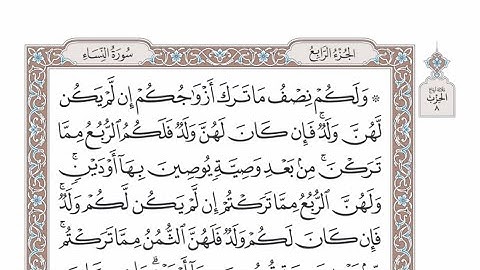 سُورَةُ النِّسَاءِ
الجُزْءُ الرَّابِعُ
الحِزْبُ
٨
۞ وَلَكُمْ نِصْفُ مَا تَرَكَ أَزْوَٰجُكُمْ إِن لَّمْ يَكُن
لَّهُنَّ وَلَدٌۚ فَإِن كَانَ لَهُنَّ وَلَدٌ فَلَكُمُ ٱلرُّبُعُ مِمَّا
تَرَكْنَۚ مِنۢ بَعْدِ وَصِيَّةٍ يُوصِينَ بِهَآ أَوْ دَيْنٍۚ
وَلَهُنَّ ٱلرُّبُعُ مِمَّا تَرَكْتُمْ إِن لَّمْ يَكُن لَّكُمْ وَلَدٌۚ
فَإِن كَانَ لَكُمْ وَلَدٌ فَلَهُنَّ ٱلثُّمُنُ مِمَّا تَرَكْتُمۚ